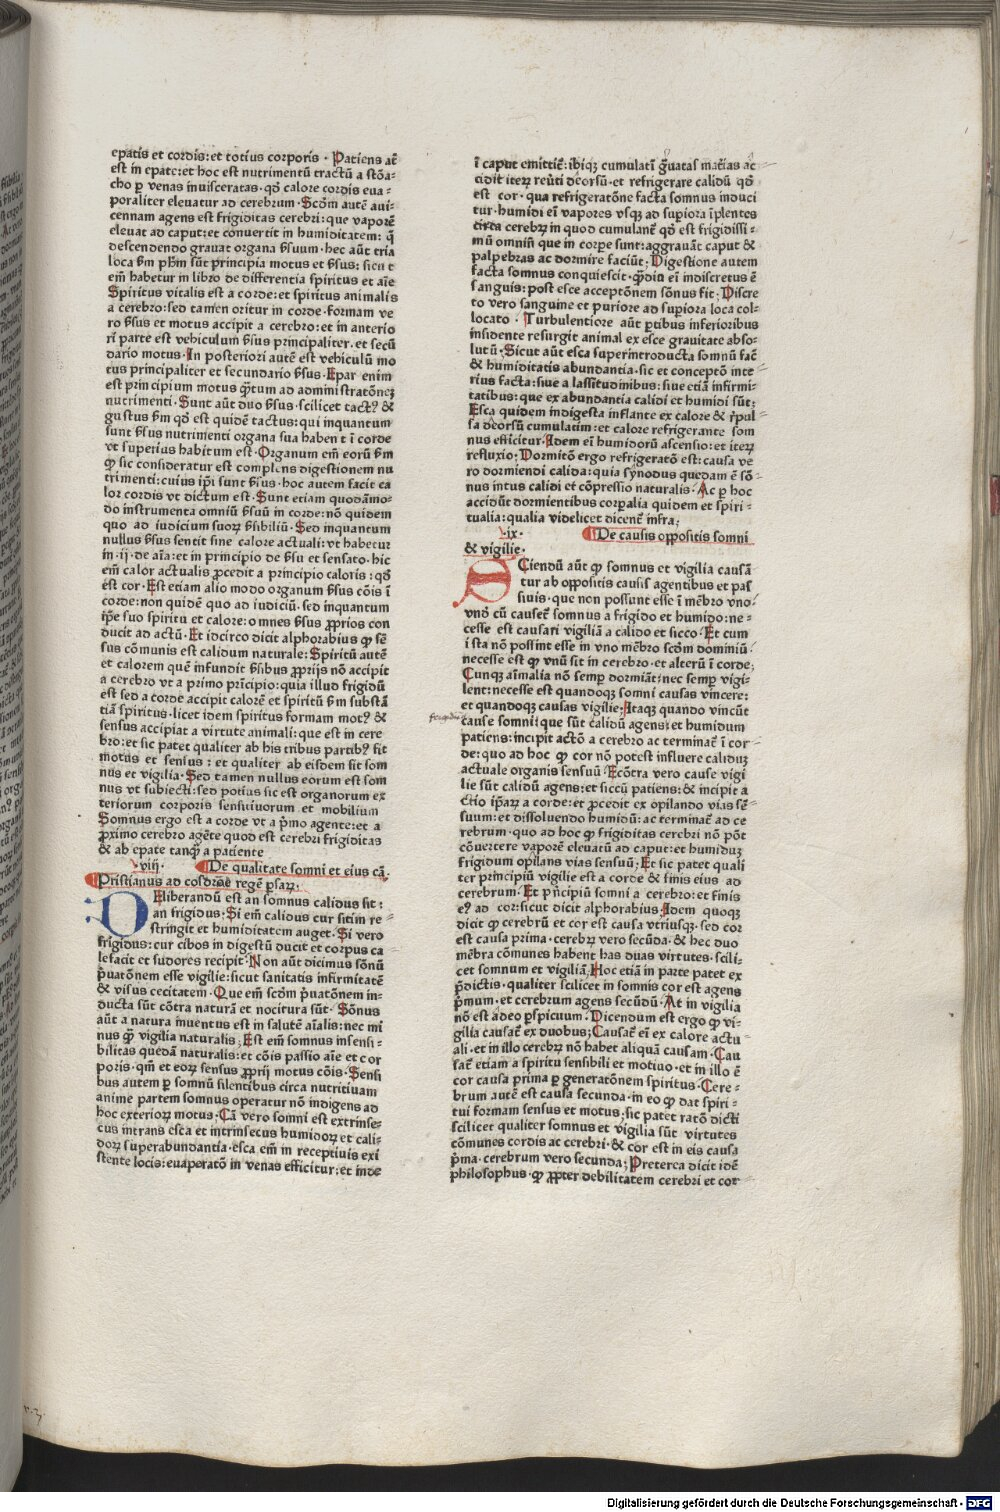 epatis et cordis:et totius corporis · Patiens aūt
est in epate:et hoc est nutrimentū tractū a stōa⸗
cho ꝑ venas inuisceratas · qd̄ calore cordis eua⸗
poraliter eleuatur ad cerebrum · Scd̄m autē aui⸗
cennam agens est frigiditas cerebri:que vaporē
eleuat ad caput:et conuertit in humiditatem: q̄
descendendo grauat organa s̄suum · hec aūt tria
loca s̄m ph̄m sūt principia motus et s̄sus: sicut
em̄ habetur in libro de differentia spiritus et aīe
Spiritus vitalis est a corde:et spiritus animalis
a cerebro:sed tamen oritur in corde·formam ve
ro s̄sus et motus accipit a cerebro:et in anterio
ri parte est vehiculum s̄sus principaliter·et secū
dario motus · In posteriori autē est vehiculū mo
tus principaliter et secundario s̄sus · Epar enim
est principium motus q̄tum ad administratōneꝫ
nutrimenti · Sunt aūt duo s̄sus·scilicet tactꝰ &
gustus s̄m qd̄ est quidē tactus: qui inquantum
sunt s̄sus nutrimenti organa sua habent ī corde
vt superius habitum est · Organum em̄ eorū s̄m
ꝙ sic consideratur est complens digestionem nu
trimenti:cuius ip̄i sunt s̄sus·hoc autem facit ca
lor cordis vt dictum est · Sunt etiam quodāmo⸗
do instrumenta omniū s̄suū in corde:nō quidem
quo ad iudicium suoꝝ s̄sibiliū · Sed inquantum
nullus s̄sus sentit sine calore actuali:vt habetur
in·ij·de aīa:et in principio de s̄su et sensato·hic
em̄ calor actualis ꝓcedit a principio caloris : qd̄
est cor·Est etiam alio modo organum s̄sus cōis ī
corde:non quidē quo ad iudiciū·sed inquantum
ip̄e suo spiritu et calore:omnes s̄sus ꝓprios con
ducit ad actū · Et idcirco dicit alphorabius ꝙ sē
sus cōmunis est calidum naturale: Spiritū autē
et calorem quem infundit s̄sibus ꝓprijs nō accipit
a cerebro vt a primo prīcipio:quia illud frigidū
est sed a corde accipit calorē et spiritū s̄m substā
tiā spiritus·licet idem spiritus formam motꝰ &
sensus accipiat a virtute animali: que est in cere
bro:et sic patet qualiter ab his tribus partibꝰ fit
motus et sensus : et qualiter ab eisdem fit som
nus et vigilia · Sed tamen nullus eorum est som
nus vt subiecti:sed potius sic est organorum ex
teriorum corporis sensitiuorum et mobilium
Somnus ergo est a corde vt a p̄mo agente:et a
ꝓximo cerebro agēte quod est cerebri frigiditas
& ab epate tanq̄ a patiente
·viij· De qualitate somni et eius cā·
Pristianus ad cosdroe regē ꝑsaꝝ:
DEliberandū est an somnus calidus sit :
an frigidus: Si em̄ calidus cur sitim re⸗
stringit et humiditatem auget · Si vero
frigidus:cur cibos in digestū ducit et corpus ca
lefacit et sudores recipit · Non aūt dicimus sōnū
p̄uatōnem esse vigilie:sicut sanitatis infirmitatē
& visus cecitatem · Que em̄ scd̄m p̄uatōnem in⸗
ducta sūt cōtra naturā et nocitura sūt · Sōnus
aūt a natura inuentus est in salutē aīalis:nec mi
nus q̄ vigilia naturalis; Est em̄ somnus insensi⸗
bilitas quedā naturalis:et cōis passio aīe et cor
poris·qm̄ et eoꝝ sensus ꝓprij motus cōis · Sensi
bus autem ꝑ somnū silentibus circa nutritiuam
anime partem somnus operatur nō indigens ad
hoc exterioꝝ motus; Cā vero somni est extrinse⸗
cus intrans esca et intrinsecus humidoꝝ et cali⸗
doꝝ superabundantia·esca em̄ in receptiuis exi
stente locis:euaporatō in venas efficitur:et inde
ī caput emittit̄:ibiqꝫ cumulatī g̃uatas mat̄ias ac⸗
cidit iteꝝ reūti deorsū·et refrigerare calidū qd̄
est cor·qua refrigeratōne facta somnus induci
tur·humidi eī vapores vsqꝫ ad suꝑiora īplentes
circa cerebꝝ in quod cumulant̄ qd̄ est frigidissi⸗
mū omniū que in corꝑe sunt:aggrauāt caput &
palpebras ac dormire faciūt; Digestione autem
facta somnus conquiescit·q̄diu eī indiscretus ē
sanguis:post esce acceptōnem sōnus fit; Discre
to vero sanguine et puriore ad suꝑiora loca col⸗
locato · Turbulentiore aūt ꝑtibus inferioribus
insidente resurgit animal ex esce grauitate abso⸗
lutū·Sicut aūt esca superintroducta somnū fac̄
& humiditatis abundantia·sic et conceptō inte⸗
rius facta:siue a lassitudinibus: siue etiā infirmi⸗
tatibus: que ex abundantia calidi et humidi sūt;
Esca quidem indigesta inflante ex calore & r̄pul⸗
sa deorsū cumulatim:et calore refrigerante som
nus efficitur·Idem eī humidorū ascensio:et iteꝝ
refluxio; Dormitō ergo refrigeratō est: causa ve
ro dormiendi calida: quia synodus quedam ē sō⸗
nus intus calidi et cōpressio naturalis · Ac ꝑ hoc
accidūt dormientibus corꝑalia quidem et spiri⸗
tualia:qualia videlicet dicent̄ infra;
·ix· De causis oppositis somni
& vigilie·
SCiendū aūt ꝙ somnus et vigilia causā⸗
tur ab oppositis causis agentibus et pas
siuis·que non possunt esse ī mēbro vno⸗
vnō cū causet̄ somnus a frigido et humido:ne⸗
cesse est causari vigiliā a calido et sicco · Et cum
ista nō possint esse in vno mēbro scd̄m dominiū·
necesse est ꝙ vnū sit in cerebro·et alterū ī corde;
Cunqꝫ aīmalia nō semꝑ dormiāt:nec semꝑ vigi⸗
lent:necesse est quandoqꝫ somni causas vincere:
et quandoqꝫ causas vigilie; Itaqꝫ quando vincūt
frigidū
cause somni:que sūt calidū agens:et humidum
patiens:incipit actō a cerebro ac terminat̄ ī cor⸗
de: quo ad hoc ꝙ cor nō potest influere calidūꝫ
actuale organis sensuū · Ecōtra vero cause vigi
lie sūt calidū agens:et siccū patiens:& incipit a⸗
ctio ip̄aꝝ a corde:et ꝓcedit ex opilando vias sē⸗
suum:et dissoluendo humidū: ac terminat̄ ad ce
rebrum·quo ad hoc ꝙ frigiditas cerebri nō pōt
cōuertere vaporē eleuatū ad caput:et humidūꝫ
frigidum opilans vias sensuū · Et sic patet quali
ter principiū vigilie est a corde & finis eius ad
cerebrum·Et p̄ncipiū somni a cerebro:et finis
eꝰ ad cor:sicut dicit alphorabius·Idem quoqꝫ
dicit ꝙ cerebrū et cor est causa vtriusqꝫ·sed cor
est causa prima·cerebꝝ vero secūda·& hec duo
mēbra cōmunes habent has duas virtutes·scili⸗
cet somnum et vigiliā; Hoc etiā in parte patet ex
p̄dictis·qualiter scilicet in somnis cor est agens
p̄mum·et cerebrum agens secūdū · At in vigilia
nō est adeo ꝑspicuum·Dicendum est ergo ꝙ vi⸗
gilia causat̄ ex duobus; Causat̄ eī ex calore actu⸗
ali·et in illo cerebꝝ nō habet aliquā causam·Cau
sat̄ etiam a spiritu sensibili et motiuo·et in illo ē
cor causa prima ꝑ generatōnem spiritus·Cere⸗
brum autē est causa secunda·in eo ꝙ dat spiri⸗
tui formam sensus et motus;sic patet ratō dicti
scilicet qualiter somnus et vigilia sūt virtutes
cōmunes cordis ac cerebri·& cor est in eis causa
p̄ma·cerebrum vero secunda; Preterea dicit idē
philosophus·ꝙ ꝓpter debilitatem cerebri et cor⸗
Digitalisierung gefördert durch die Deutsche Forschungsgemeinschaft - DFG